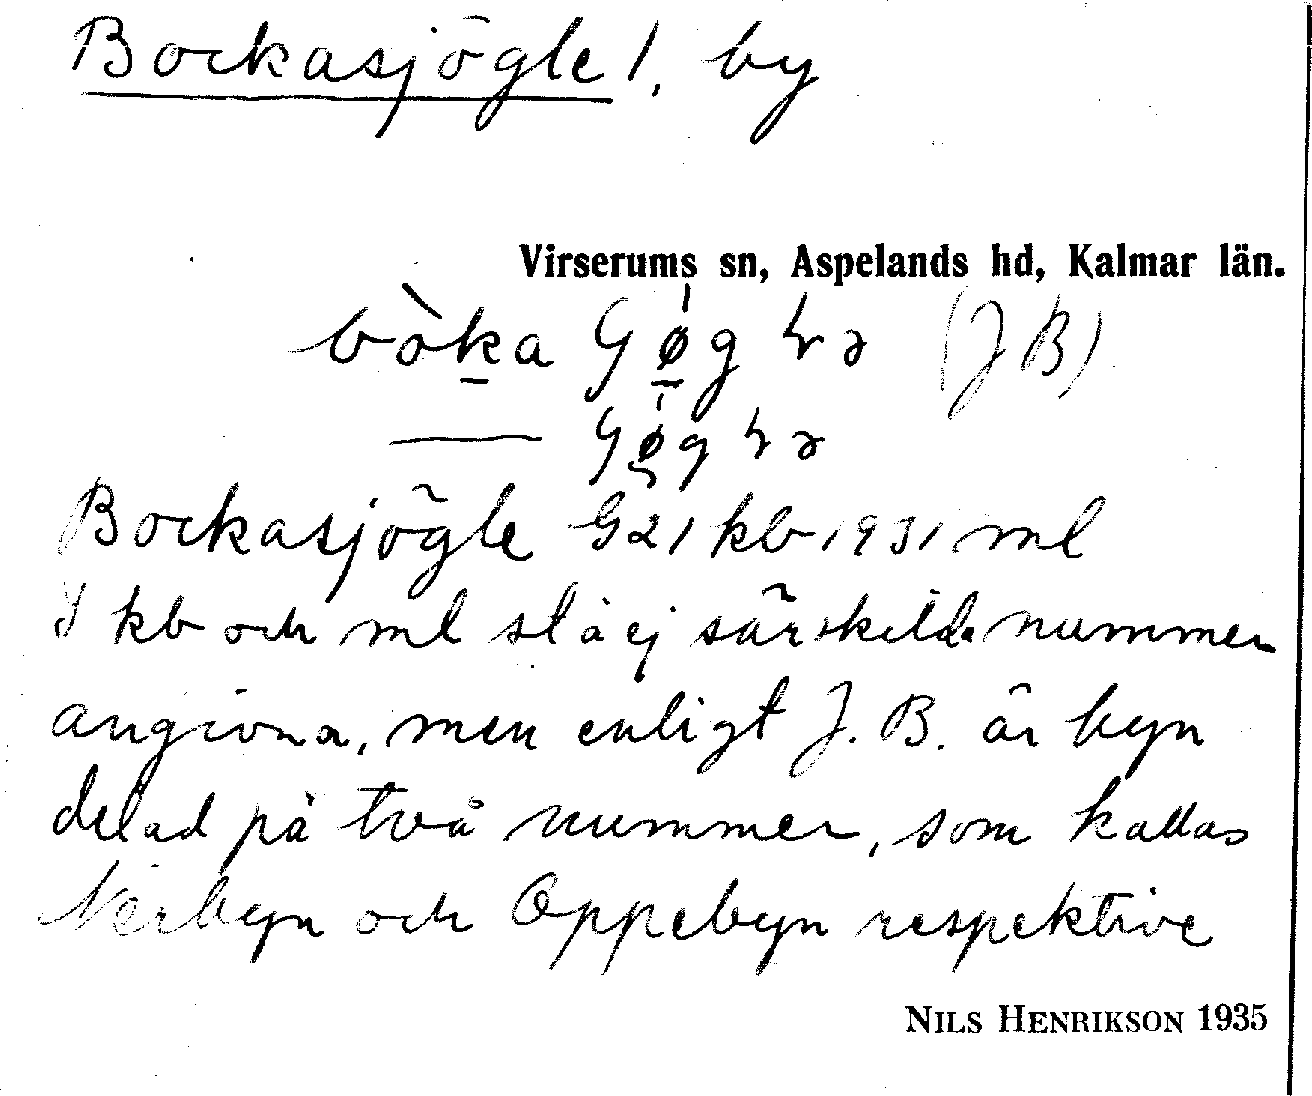 Bockasjögle 1, by
Virserums sn, Aspelands hd, Kalmar län.
bòka (JB)
Bockasjögle G21 kb 1931 ml
I kb och ml stå ej särskilda nummer
angivna, men enligt J. B. är byn
delad på två nummer, som kallas
Nerbyn och Oppebyn respektive
NILS HENRIKSON 1935